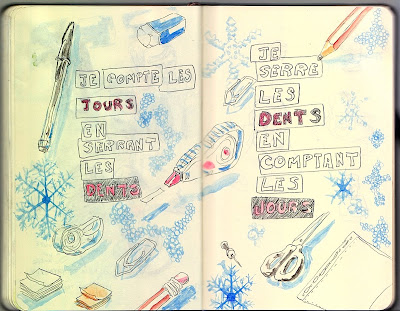 JE COMPTE LES
JOURS
EN
SERRANT
LES
DENTS
JE
SERRE
LES
DENTS
EN
COMPTANT
LES
JOURS